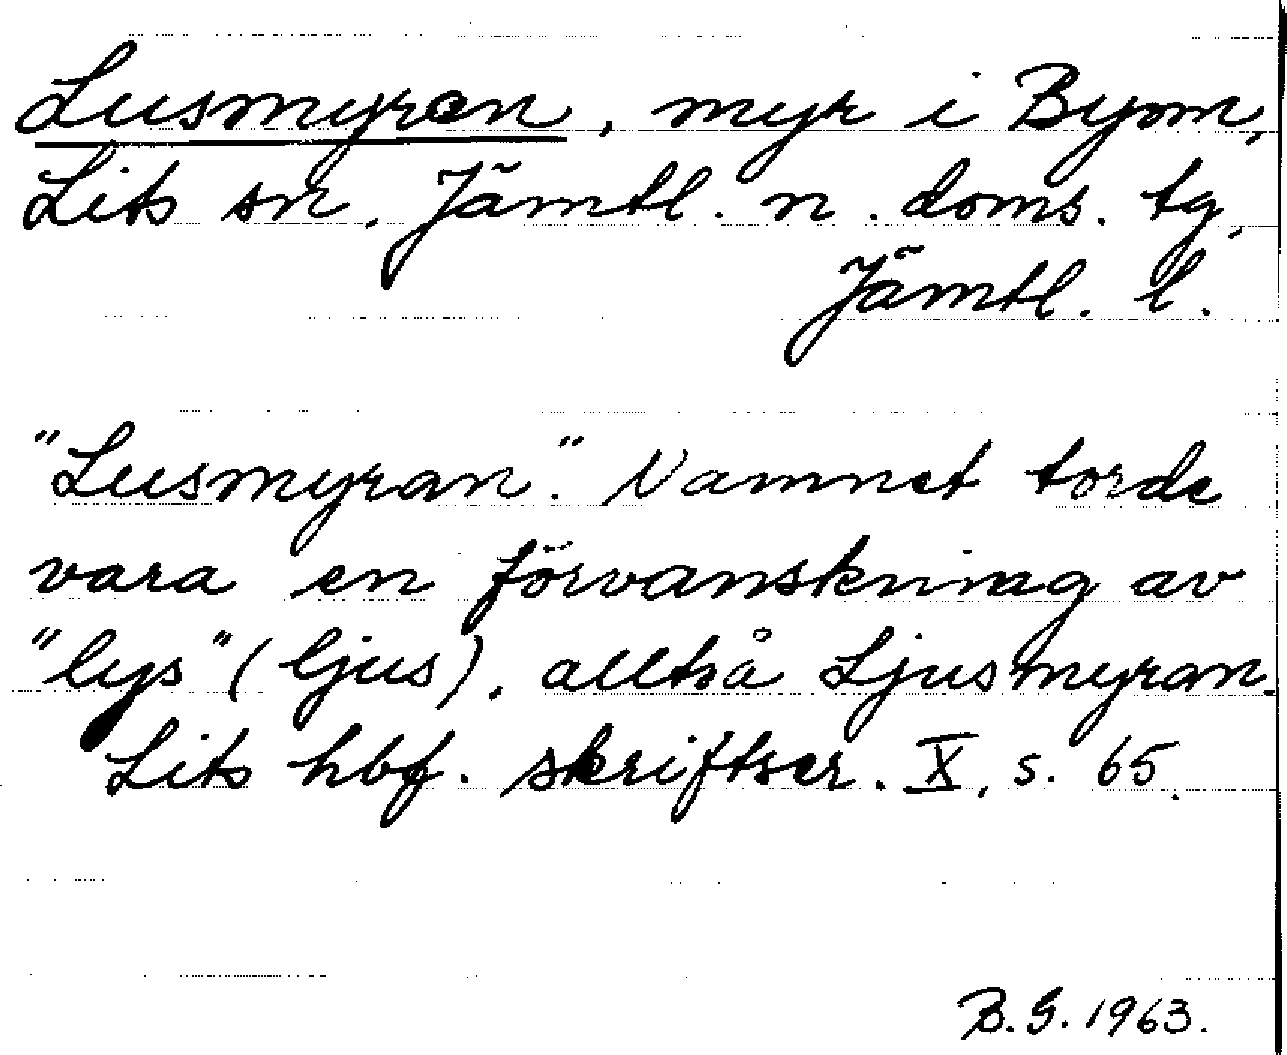 Lusmyran, myr i Byom,
Lits sn, Jämtl. n. doms. tg,
Jämtl. l.
"Lusmyran". Namnet torde
vara en förvanskning av
"lys" (ljus), alltså Ljusmyran.
Lits hbf. skriftser. X, s. 65.
B.G. 1963.